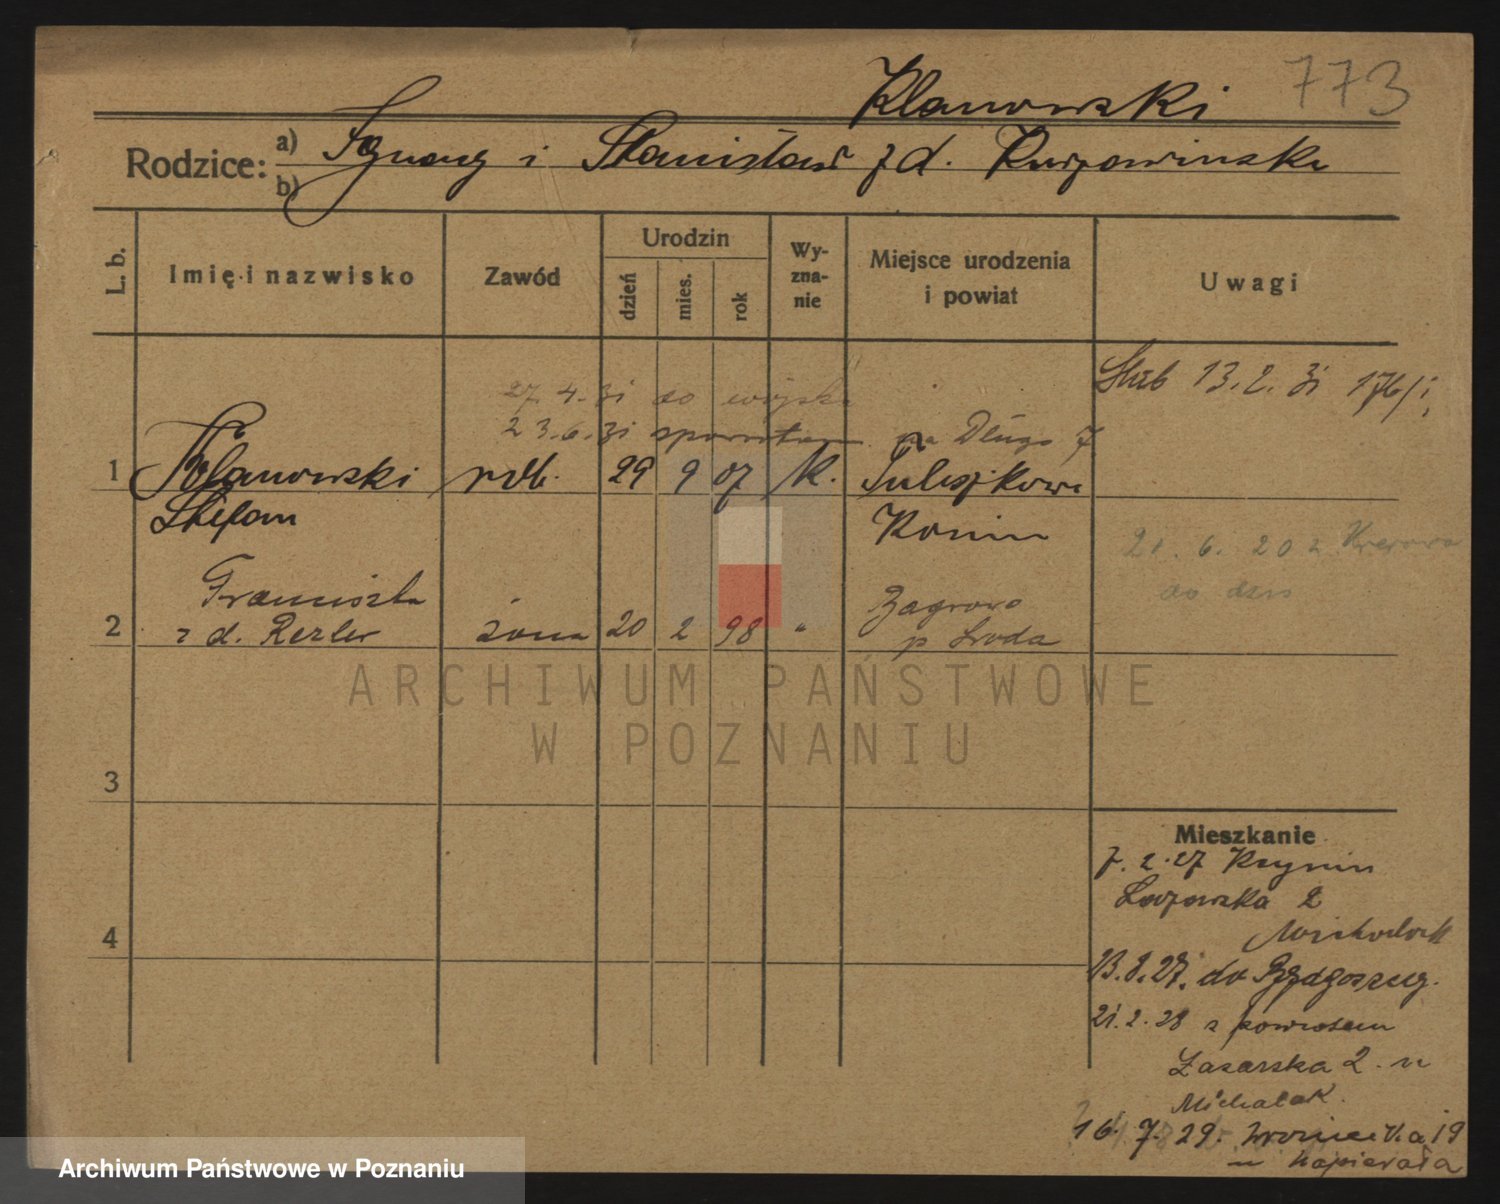 773
Klanowski
Rodzice: a) Ignacy i Stanisława z d.
b)
L. b.
Imię i nazwisko
Zawód
Urodzin
dzień
mies.
rok
Wy-
zna-
nie
Miejsce urodzenia
i powiat
Uwagi
Ślub 13.2.31 176/31
27.4.31 do wojska
23.6.31 spowrotem na Długa 7
1 Klanowski rob. 29 9 07 k.
Stefan Konin
21.6.20 z
do dziś
Franciszka Zagrowo
2 z d. Rezler żona 20 2 98 " p Środa
3
4
Mieszkanie
7.2.27
2
13.8.27. do Bydgoszczy.
21.2.28 z powrotem
Łazarska 2. u
Michalak.
16.7.29. Wroniecka 19
u Napierała
ARCHIWUM PAŃSTWOWE
W POZNANIU
Archiwum Państwowe w Poznaniu